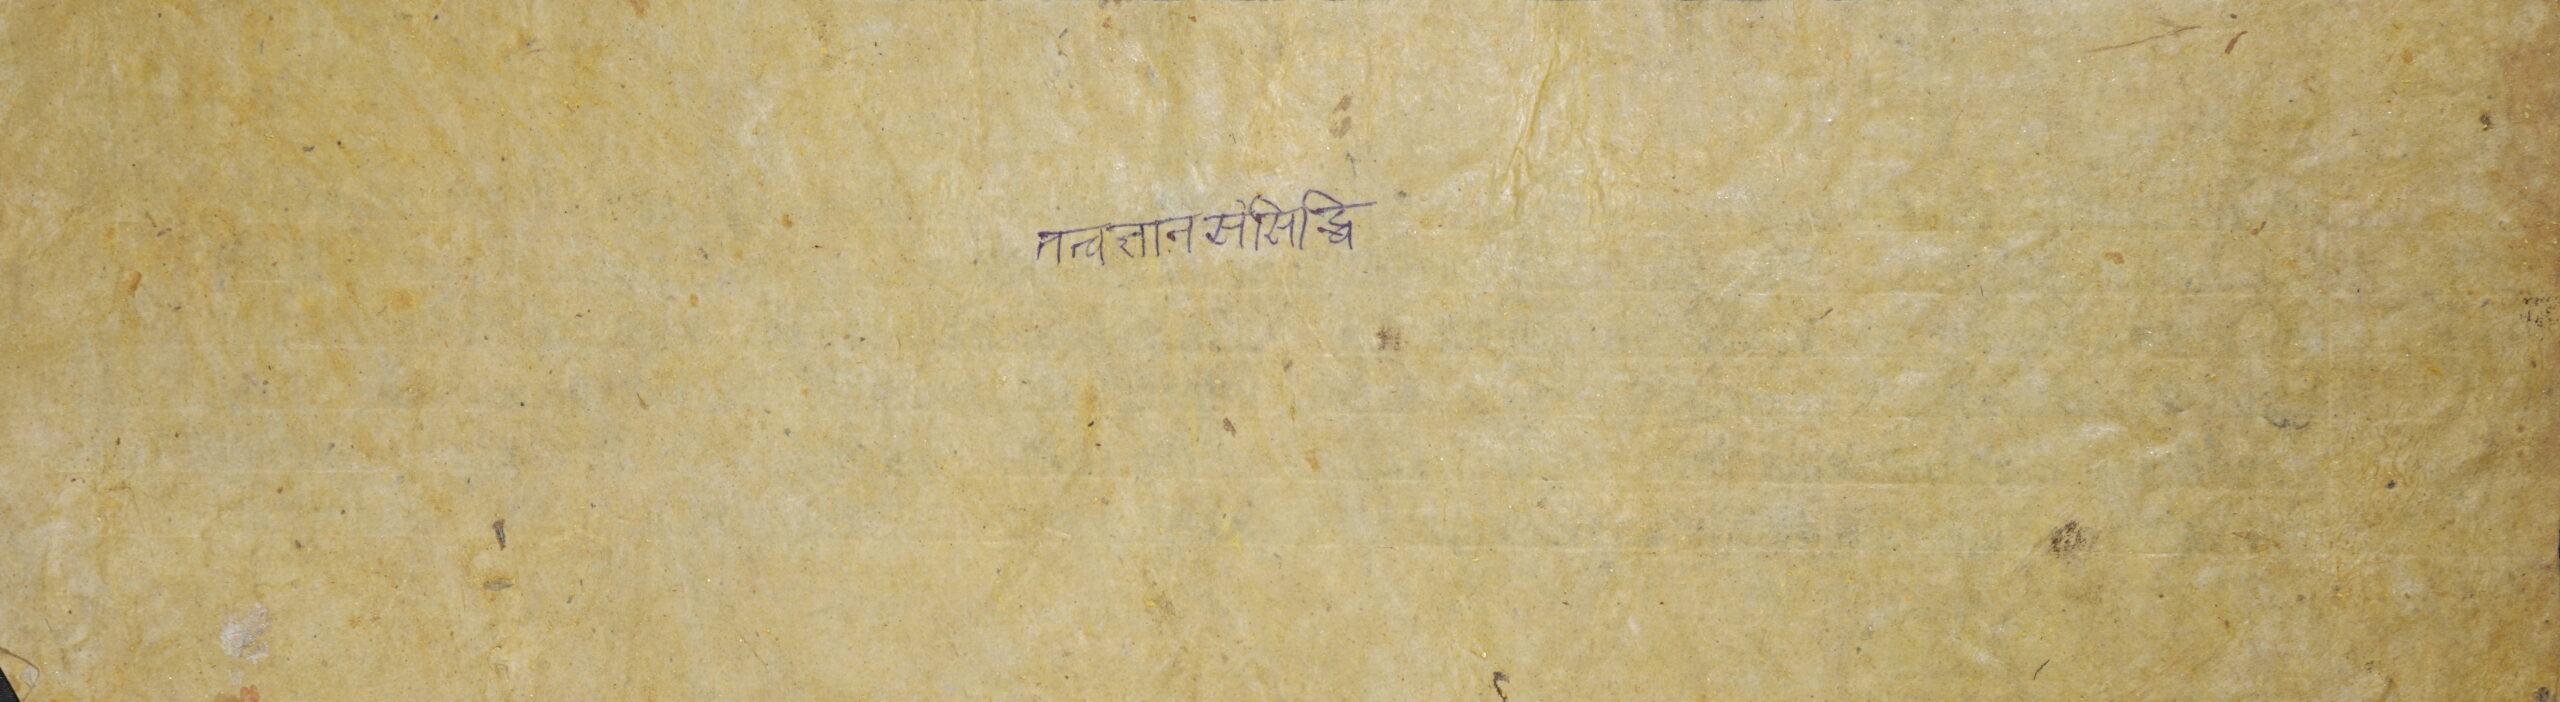 तत्वज्ञान संसिद्धि